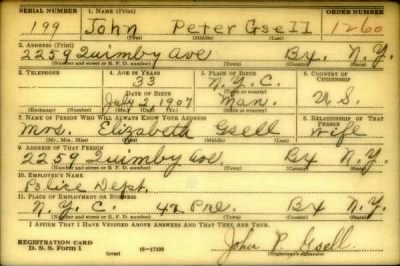 SERIAL NUMBER 1. NAME (Print) ORDER NUMBER
199 John Peter Gsell 1260
(First) (Middle) (Last)
2. ADDRESS (Print)
2259 Quimby Ave Bx. N.Y.
(Number and street or R. F. D. number) (Town) (County) (State)
3. TELEPHONE 4. AGE IN YEARS 5. PLACE OF BIRTH 6. COUNTRY OF CITIZENSHIP
33 N.Y.C.
DATE OF BIRTH (Town or county)
July 2, 1907 Man. U.S.
(Exchange) (Number) (Mo.) (Day) (Yr.) (State or country)
7. NAME OF PERSON WHO WILL ALWAYS KNOW YOUR ADDRESS 8. RELATIONSHIP OF THAT PERSON
Mrs. Elizabeth Gsell Wife
(Mr., Mrs., Miss) (First) (Middle) (Last)
9. ADDRESS OF THAT PERSON
2259 Quimby Ave. Bx N.Y.
(Number and street or R. F. D. number) (Town) (County) (State)
10. EMPLOYER'S NAME
Police Dept.
11. PLACE OF EMPLOYMENT OR BUSINESS
N.Y.C. 42 Pre. Bx N.Y.
(Number and street or R. F. D. number) (Town) (County) (State)
I AFFIRM THAT I HAVE VERIFIED ABOVE ANSWERS AND THAT THEY ARE TRUE.
REGISTRATION CARD
D. S. S. Form 1 (over) 16—17105 John P. Gsell.
(Registrant's signature)